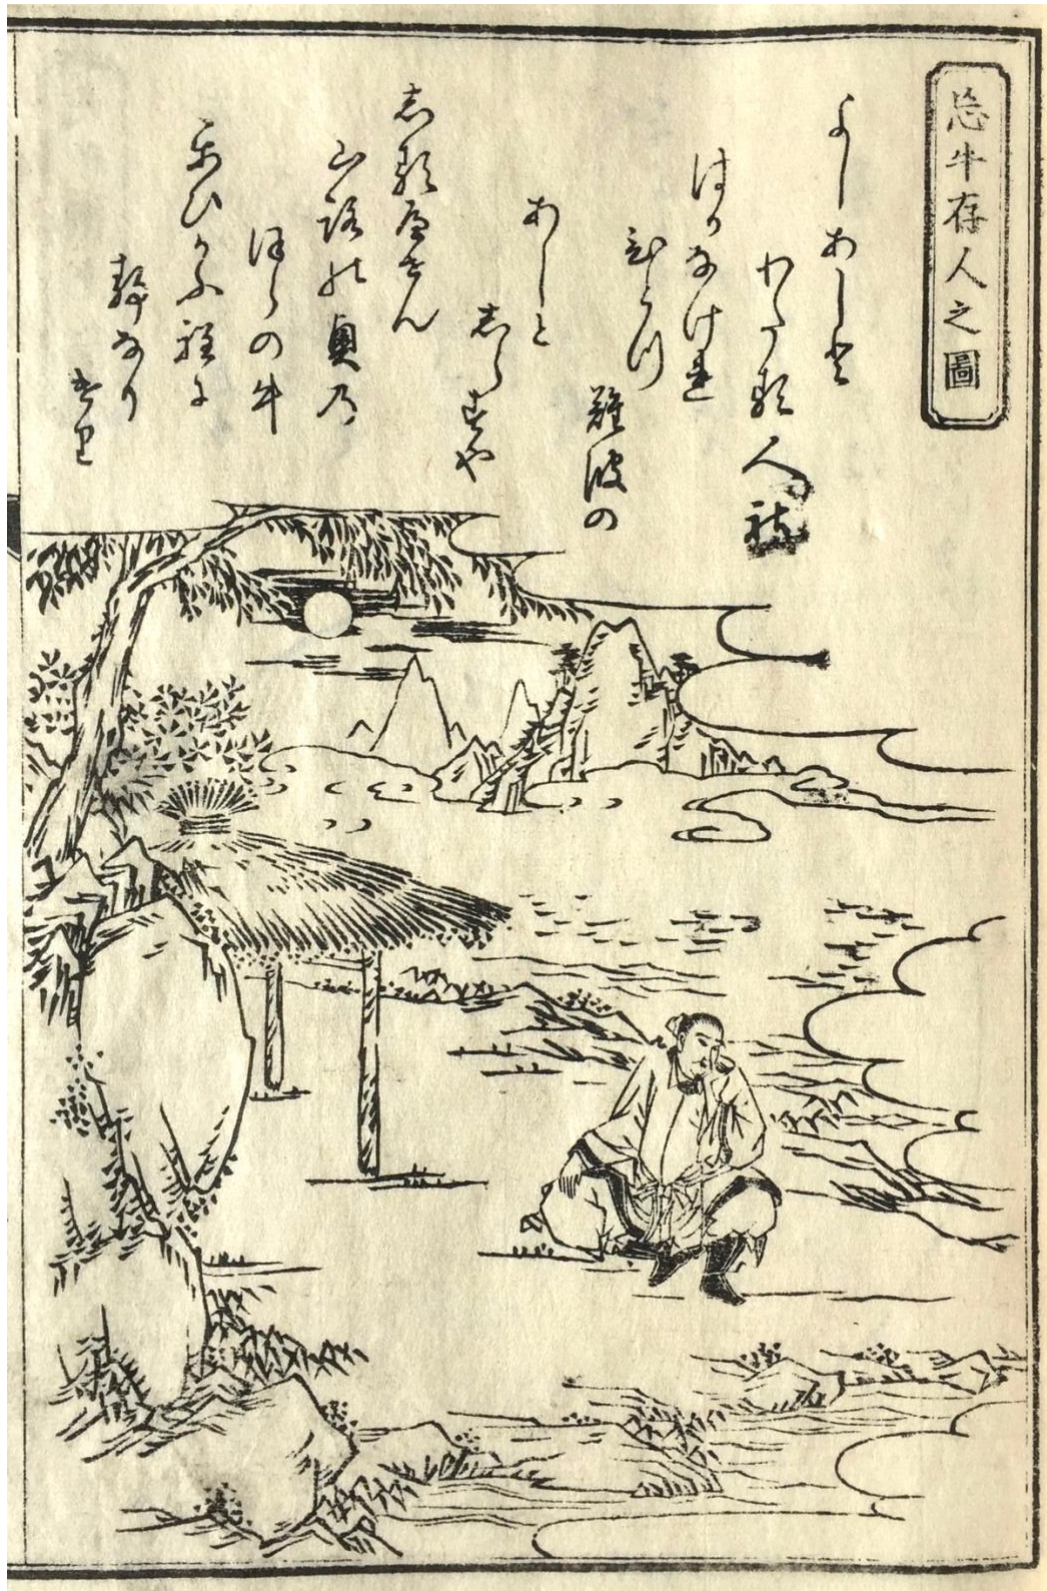 忘牛存人之圖
よしあしと
わたる人社
はかなけれ
ひとつ
難波の
あしと
志らすや
志るへせん
山路の奥乃
ほらの牛
かひかふ程に
静なり
けり